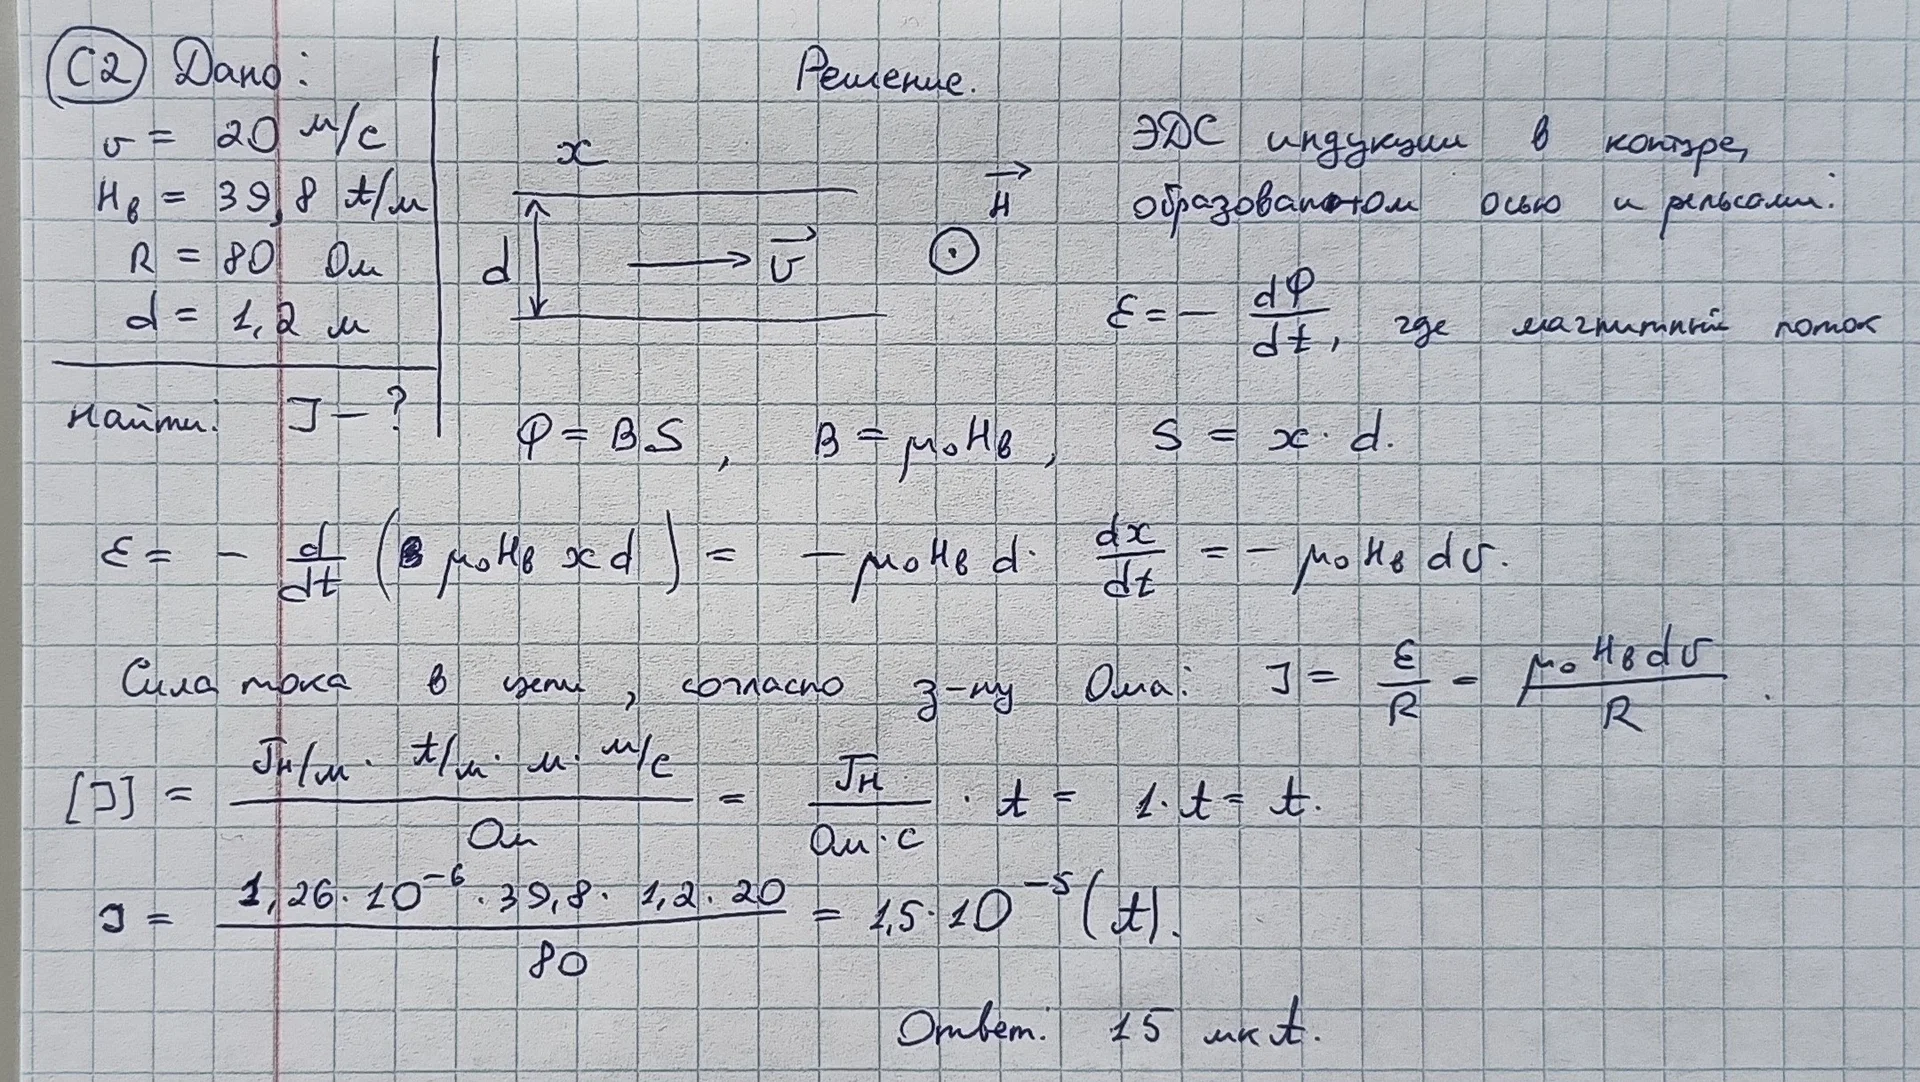 С2 Дано:
v = 20 м/с
Hв = 39,8 А/м
R = 80 Ом
d = 1,2 м
найти: J - ?
Решение.
x
d
v
H
ЭДС индукции в контуре,
образованном осью и рельсами:
ε = - dФ/dt, где магнитный поток
Ф = BS, B = μ₀Hв, S = x · d.
ε = - d/dt (μ₀Hв x d) = - μ₀Hв d · dx/dt = - μ₀Hв dv.
Сила тока в цепи, согласно з-ну Ома: J = ε/R = μ₀Hвdv/R.
[J] = (Гн/м · А/м · м · м/с)/Ом = Гн/(Ом·с) · А = 1 · А = А.
J = (1,26 · 10⁻⁶ · 39,8 · 1,2 · 20)/80 = 1,5 · 10⁻⁵ (А).
Ответ: 15 мкА.